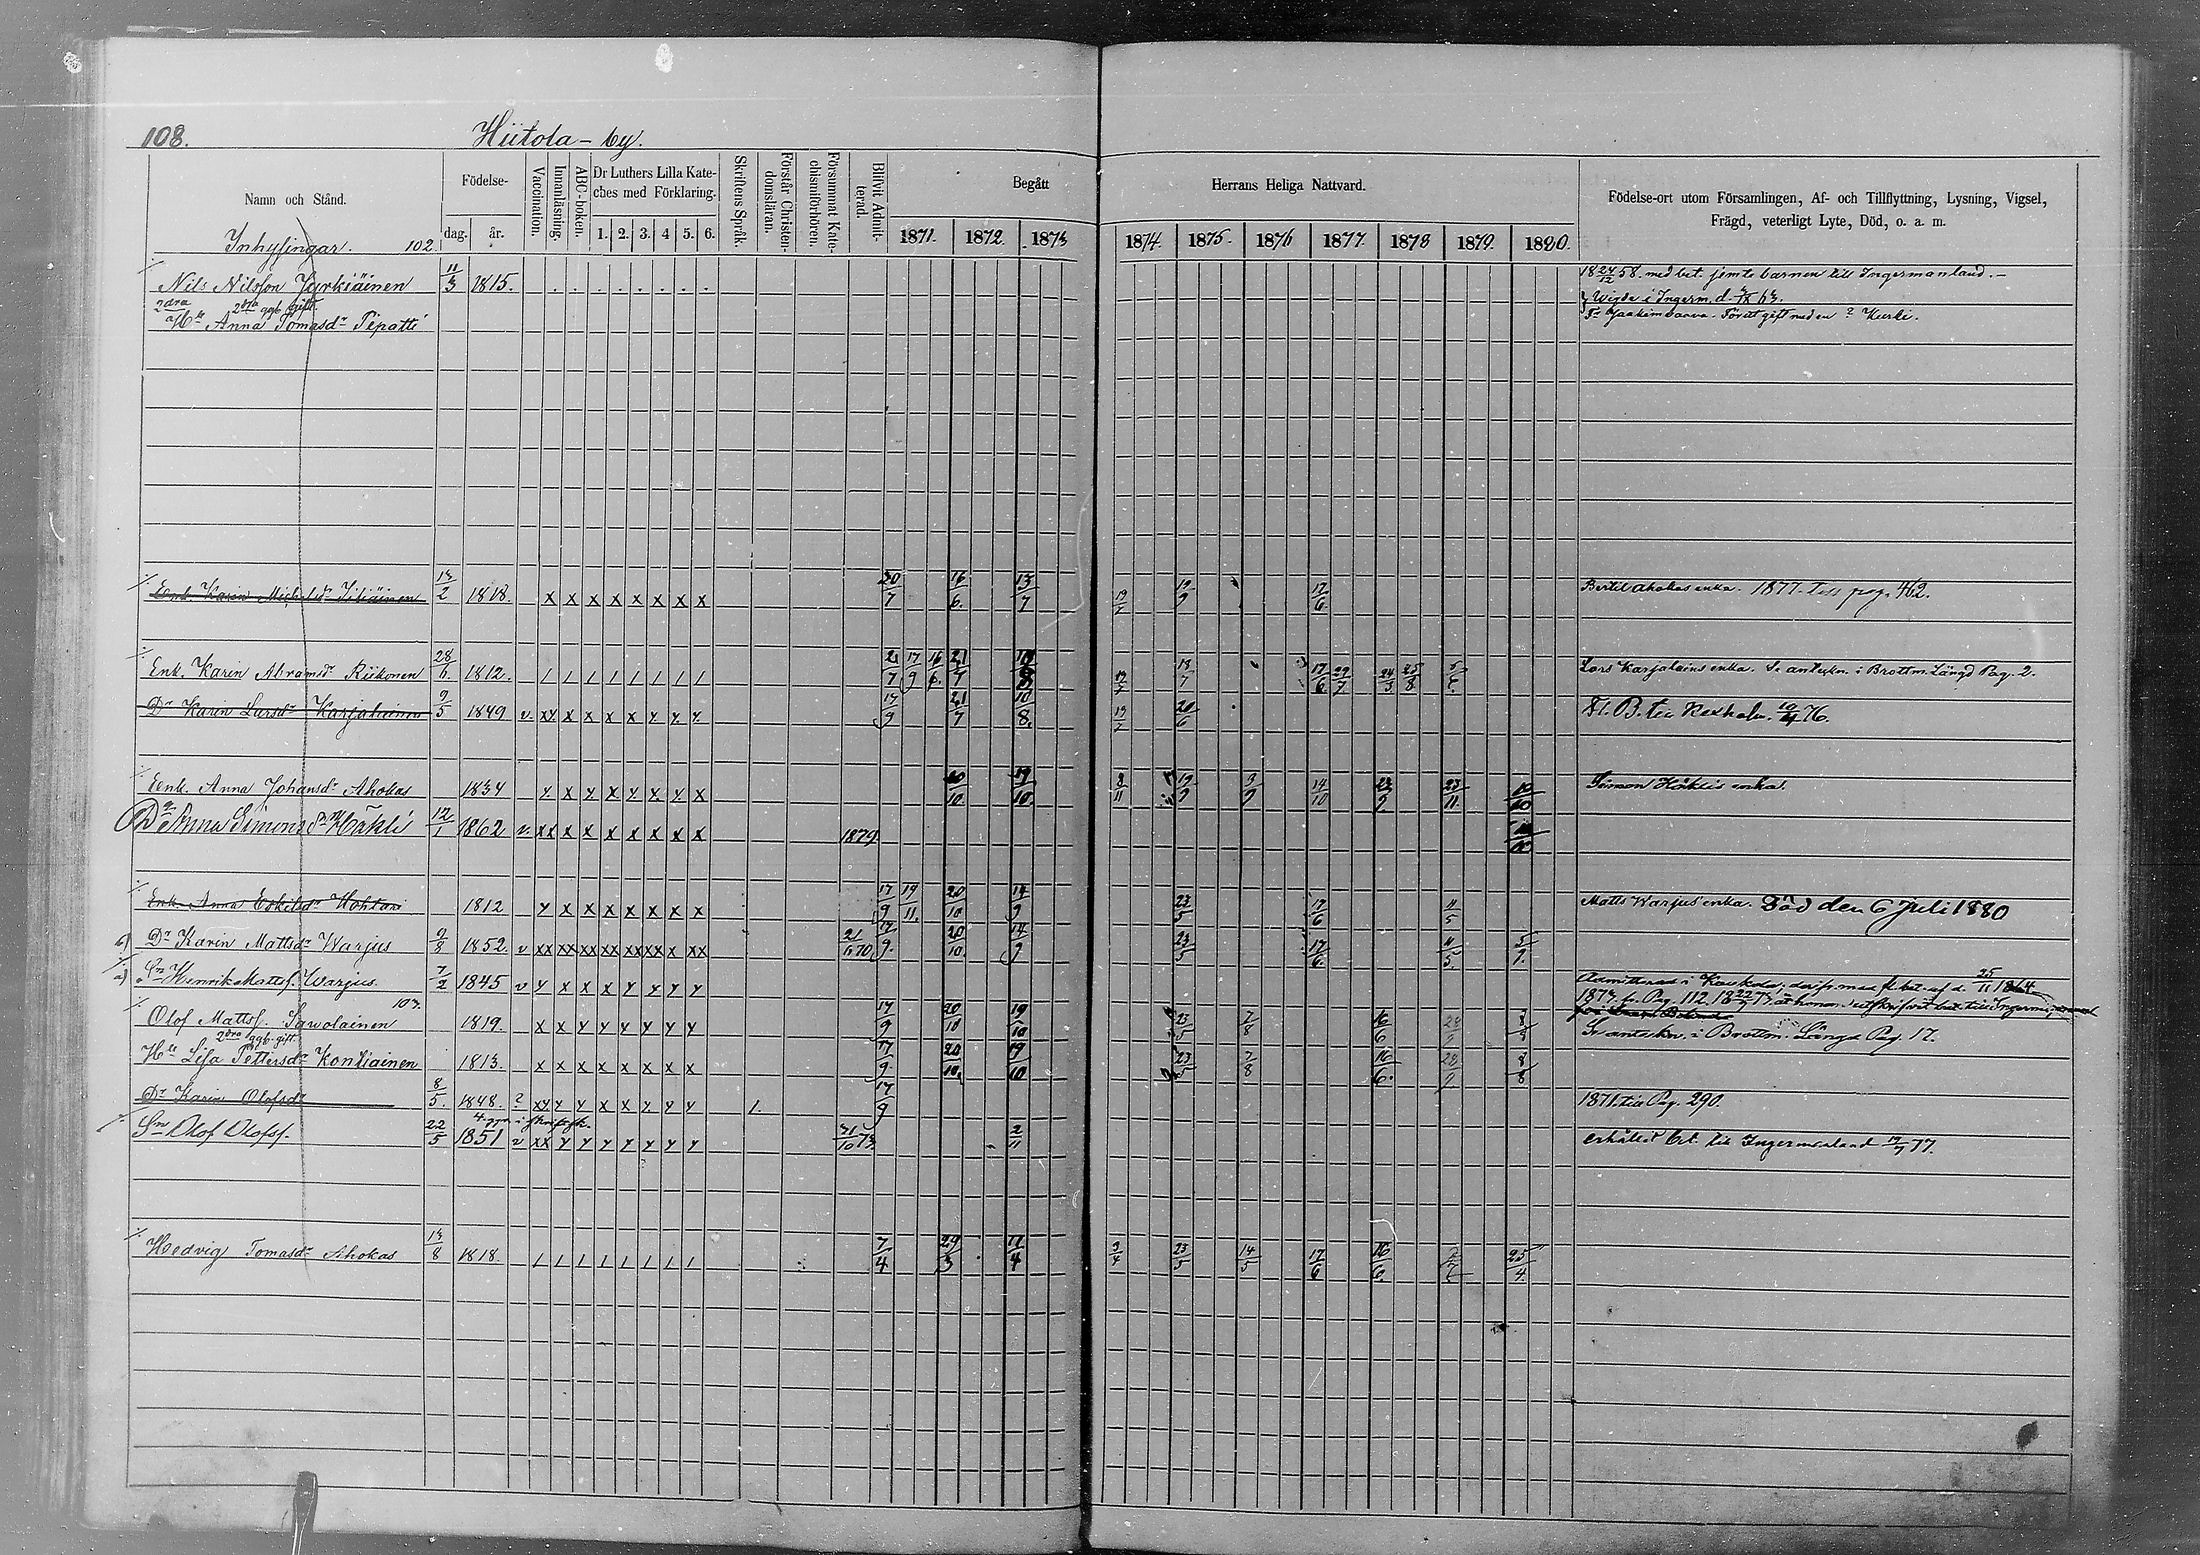 108. Hiitola - by.
Namn och Stånd. Födelse- Vaccination. Innanläsning. ABC-boken. Dr Luthers Lilla Kateches med Förklaring. Skriftens Språk. Förstår Christendomsläran. Försummat Katechismiförhören. Blifvit Admitterad. Begått Herrans Heliga Nattvard. Födelse-ort utom Församlingen, Af- och Tillflyttning, Lysning, Vigsel, Frägd, veterligt Lyte, Död, o. a. m.
dag. år. 1. 2. 3. 4 5. 6. 1871. 1872. 1873 1874. 1875. 1876 1877. 1878 1879. 1880.
Inhysingar. 102.
Nils Nilsson Jyrkiäinen 11/3 1815. 18 24/12 58. med bet. jemte barnen till Ingermanland. -
2dra 2dra ggb gift. Wigde i Ingerm. d.
Hu Anna Tomasdr Pepatti Fr Joakimvaara. Förut gift med en ? Kurki.
Enk. Karin Michelsdr 13/2 1818. x x x x x x x x 30/7 16/6. 13/7 19/7 19/9 17/6 Bertil Ahokas enka. 1877. till pag. 462.
Enk. Karin Abramsdr Riikonen 28/6. 1812. / / / / / / / / 2/7 17/9 16/6. 21/7 19/7 18/7 17/6 29/7 24/3 25/8 Lars Karjalains enka. Se antekn. i Brottm. Längd Pag. 2.
Dr Karin Larsdr Karjalainen 9/5 1849 v. xy x x x x y y y 17/9 21/7 10/8. 19/7 20/6 Fl. B. till Kexholm. 76.
Enk. Anna Johansdr Ahokas 1834 y x y x y y y x 20/10 19/10. 8/11 19/9 9/9 14/10 22/9 23/11. 10/10 Simon Hörkkis enka.
Dr Anna Simonsdr Hörkli 12/1 1862 v. xx x x x x x x x 1879
Enk. Anna Eskilsdr Kohtari 1812 y x x x x x x x 17/9 19/11. 20/10 14/9 23/5 17/6 11/5 Matts Warjus' enka. Död den 6 Juli 1880
b) Dr Karin Mattsdr Warjus 9/8 1852. v xx xx xx xx xx xx x xx 21/6 70 17/9. 20/10. 14/9 23/5 17/6. 11/5. 5/9.
a) Sn Henrik Mattss. Warjus. 7/2 1845 v y x x x y y y y Admitterad i Kaukola; derifr. med fl. bet. af d. 25/11 1864
103. 1873 fr. Pag. 112. 18 22/7 73 åt honom utskrifvit bet. till Ingerm.
Olof Mattss. Sawolainen 1819. x x y y y y y y 17/9 20/10 19/10 23/5 7/8 16/6 28/9 8/8 Se antekn. i Brottm. Längd Pag. 17.
2dra ggb. gift.
Hu Lisa Pettersdr Kontiainen 1813. x x x x x x x x 17/9. 20/10. 19/10 23/5 7/8 16/6. 28/9 8/8
Dr Karin Olofsdr 8/5. 1848. ? xy y y x x y y y 1. 17/9 1871. till Pag. 290.
4 ggr i skriftsk.
Sn Olof Olofss. 22/5 1851 v xx y y y y y y y 31/10 73 2/11 erhållit bet. till Ingermanland 19/7 77.
Hedvig Tomasdr Ahokas 13/8 1818. / / / / / / / / 7/4 29/3 11/4 3/4 23/5 14/5 17/6 16/6. 25/4.